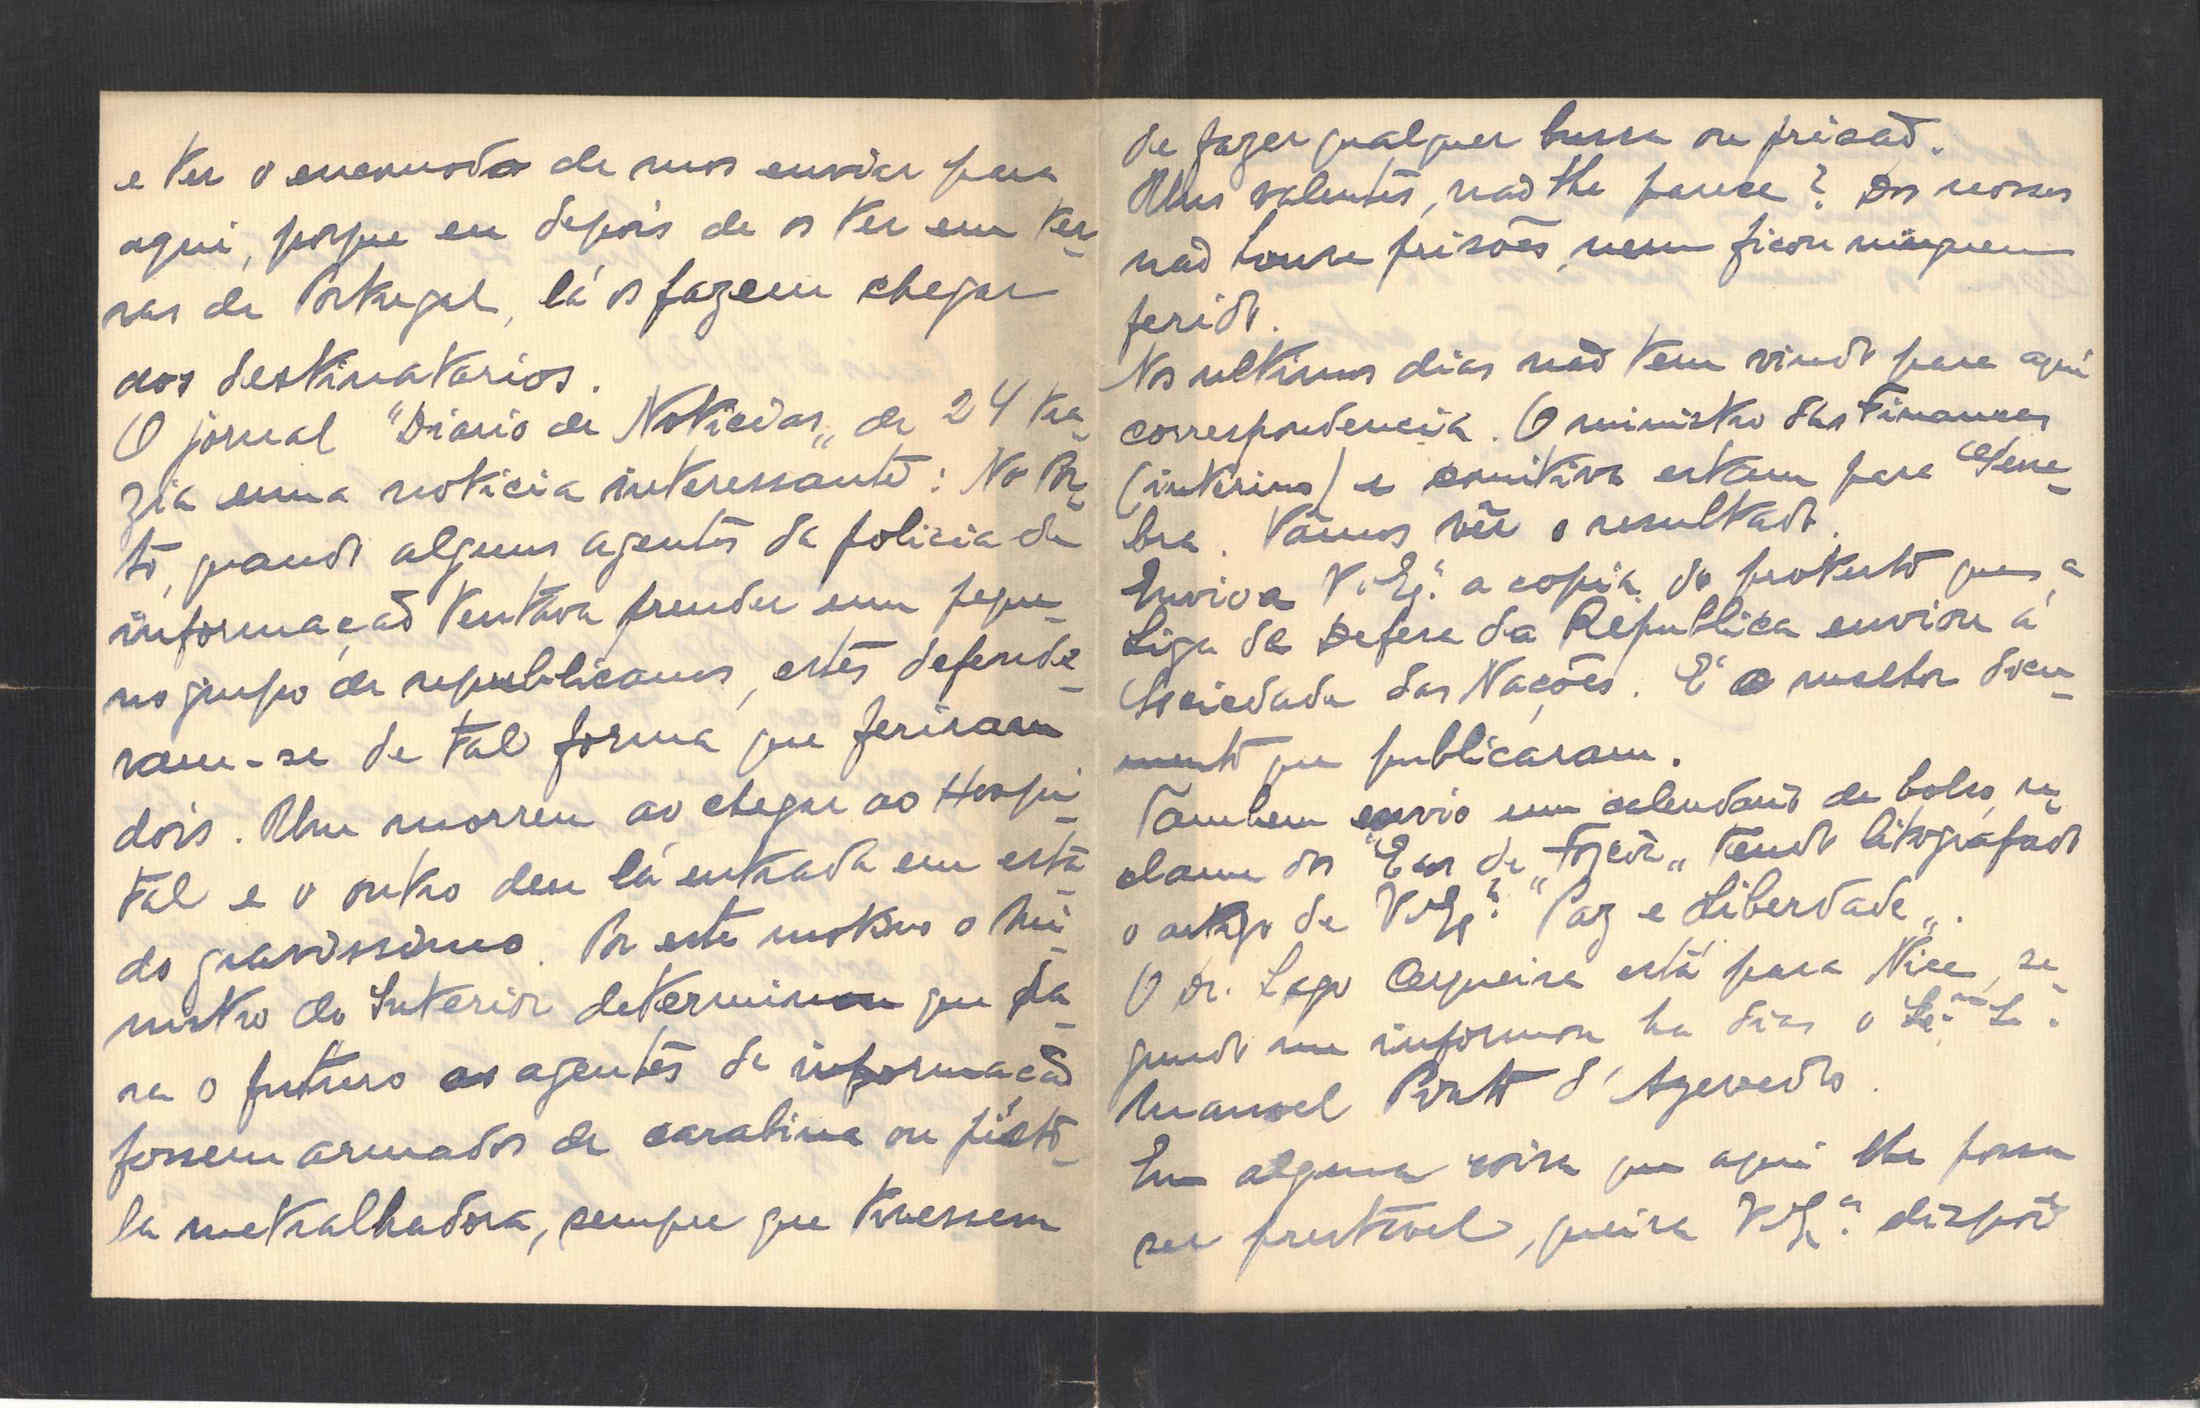 e ter o encomodo de nos enviar para
aqui, porque eu depois de os ter em ter-
ras de Portugal, lá os fazem chegar
aos destinatarios.
O jornal "Diario de Noticias" de 24 tra-
zia uma noticia interessante: No Por-
to, quando alguns agentes da policia de
informação tentava prender um peque-
no grupo de republicanos, estes defende-
ram-se de tal forma que feriram
dois. Um morreu ao chegar ao Hospi-
tal e o outro deu lá entrada em esta-
do gravissimo. Por este motivo o Mi-
nistro do Interior determinou que pa-
ra o futuro os agentes de informação
fossem armados de carabina ou pisto-
la metralhadora, sempre que tivessem
de fazer qualquer busca ou prisão.
Uns valentes, não lhe parece? Dos nossos
não houve prisões, nem ficou ninguem
ferido.
Nos ultimos dias não tem vindo para aqui
correspondencia. O ministro das Finances
(interino) e comitiva estam para Gene-
bra. Vâmos vêr o resultado.
Envio a V. Exª. a copia do protesto que a
Liga da Defesa da Republica enviou á
Sociedade das Nações. É o melhor docu-
mento que publicaram.
Tambem envio um calendario de bolso, re-
clame dos "Ecos de" tendo litografado
o artigo de V. Exª. "Paz e Liberdade".
O Dr. Lago Cerqueira está para Nice, se-
gundo me informou ha dias o
Manoel Pinto d'Azevedo.
Em alguma coisa que aqui lhe possa
ser prestavel, queira V. Exª. dispôr